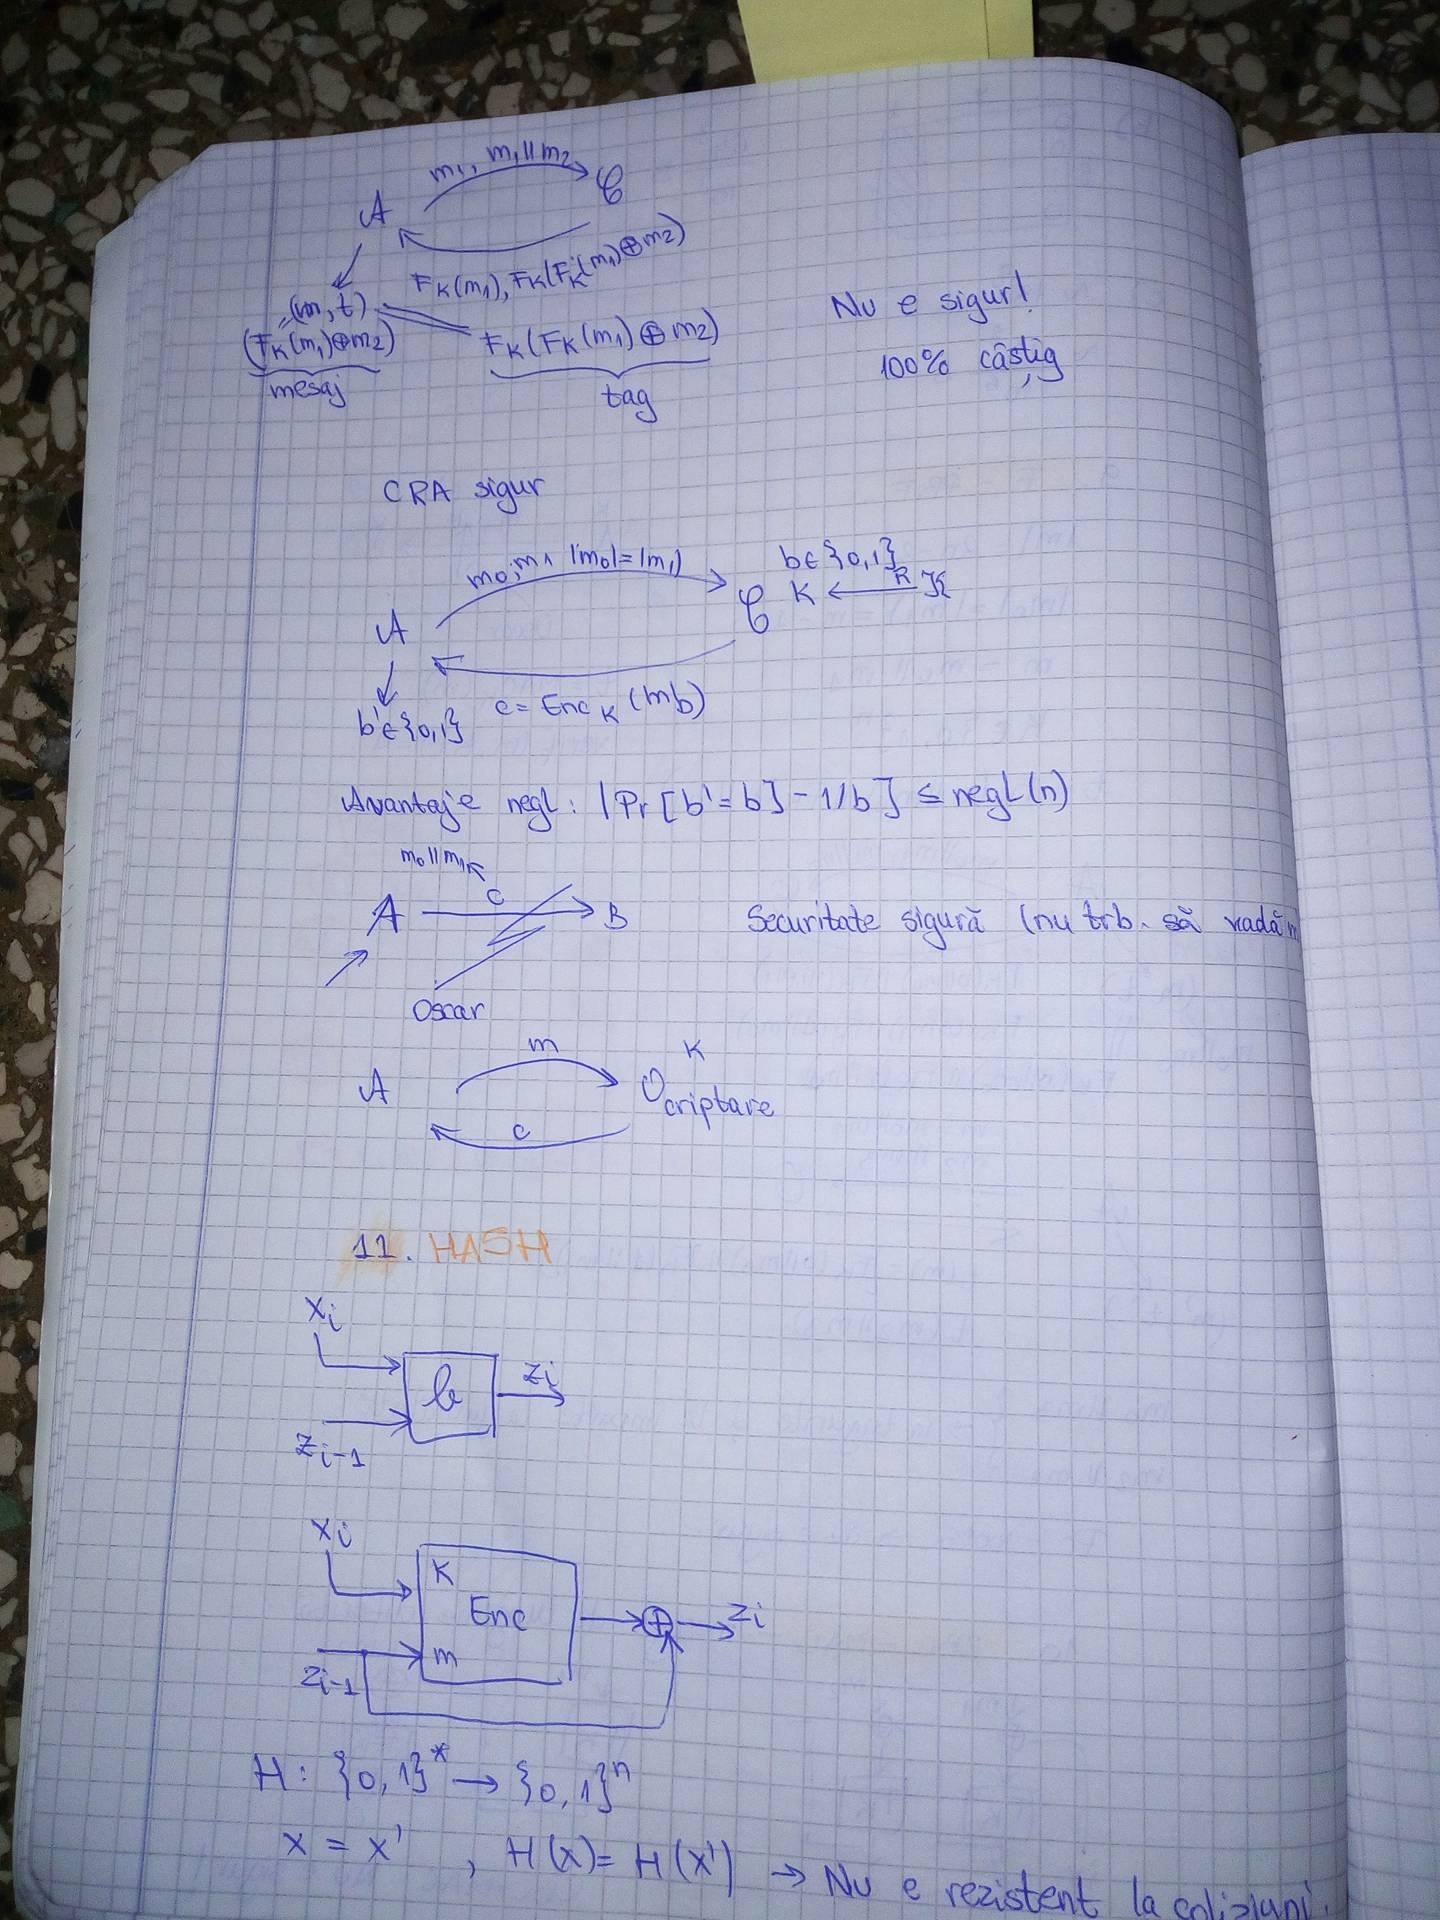 m₁, m₁||m₂
A
C
F_K(m₁), F_K(F_K(m₁)⊕m₂)
(m, t)
(F_K(m₁)⊕m₂)
F_K(F_K(m₁)⊕m₂)
mesaj
tag
Nu e sigur!
100% câștig
CRA sigur
m₀, m₁ |m₀|=|m₁|
b∈{0,1}
A
C K ←R K
c = Enc_K (m_b)
b'∈{0,1}
Avantaje negl: |Pr[b'=b] - 1/b] ≤ negl(n)
m₀||m₁
c
A B
Securitate sigură (nu trb. să vadă
Oscar
m
K
A
O criptare
c
11. HASH
x_i
h
z_i
z_{i-1}
x_i
K
Enc
⊕
z_i
m
z_{i-1}
H: {0,1}* → {0,1}ⁿ
x = x' , H(x) = H(x') → Nu e rezistent la coliziuni.